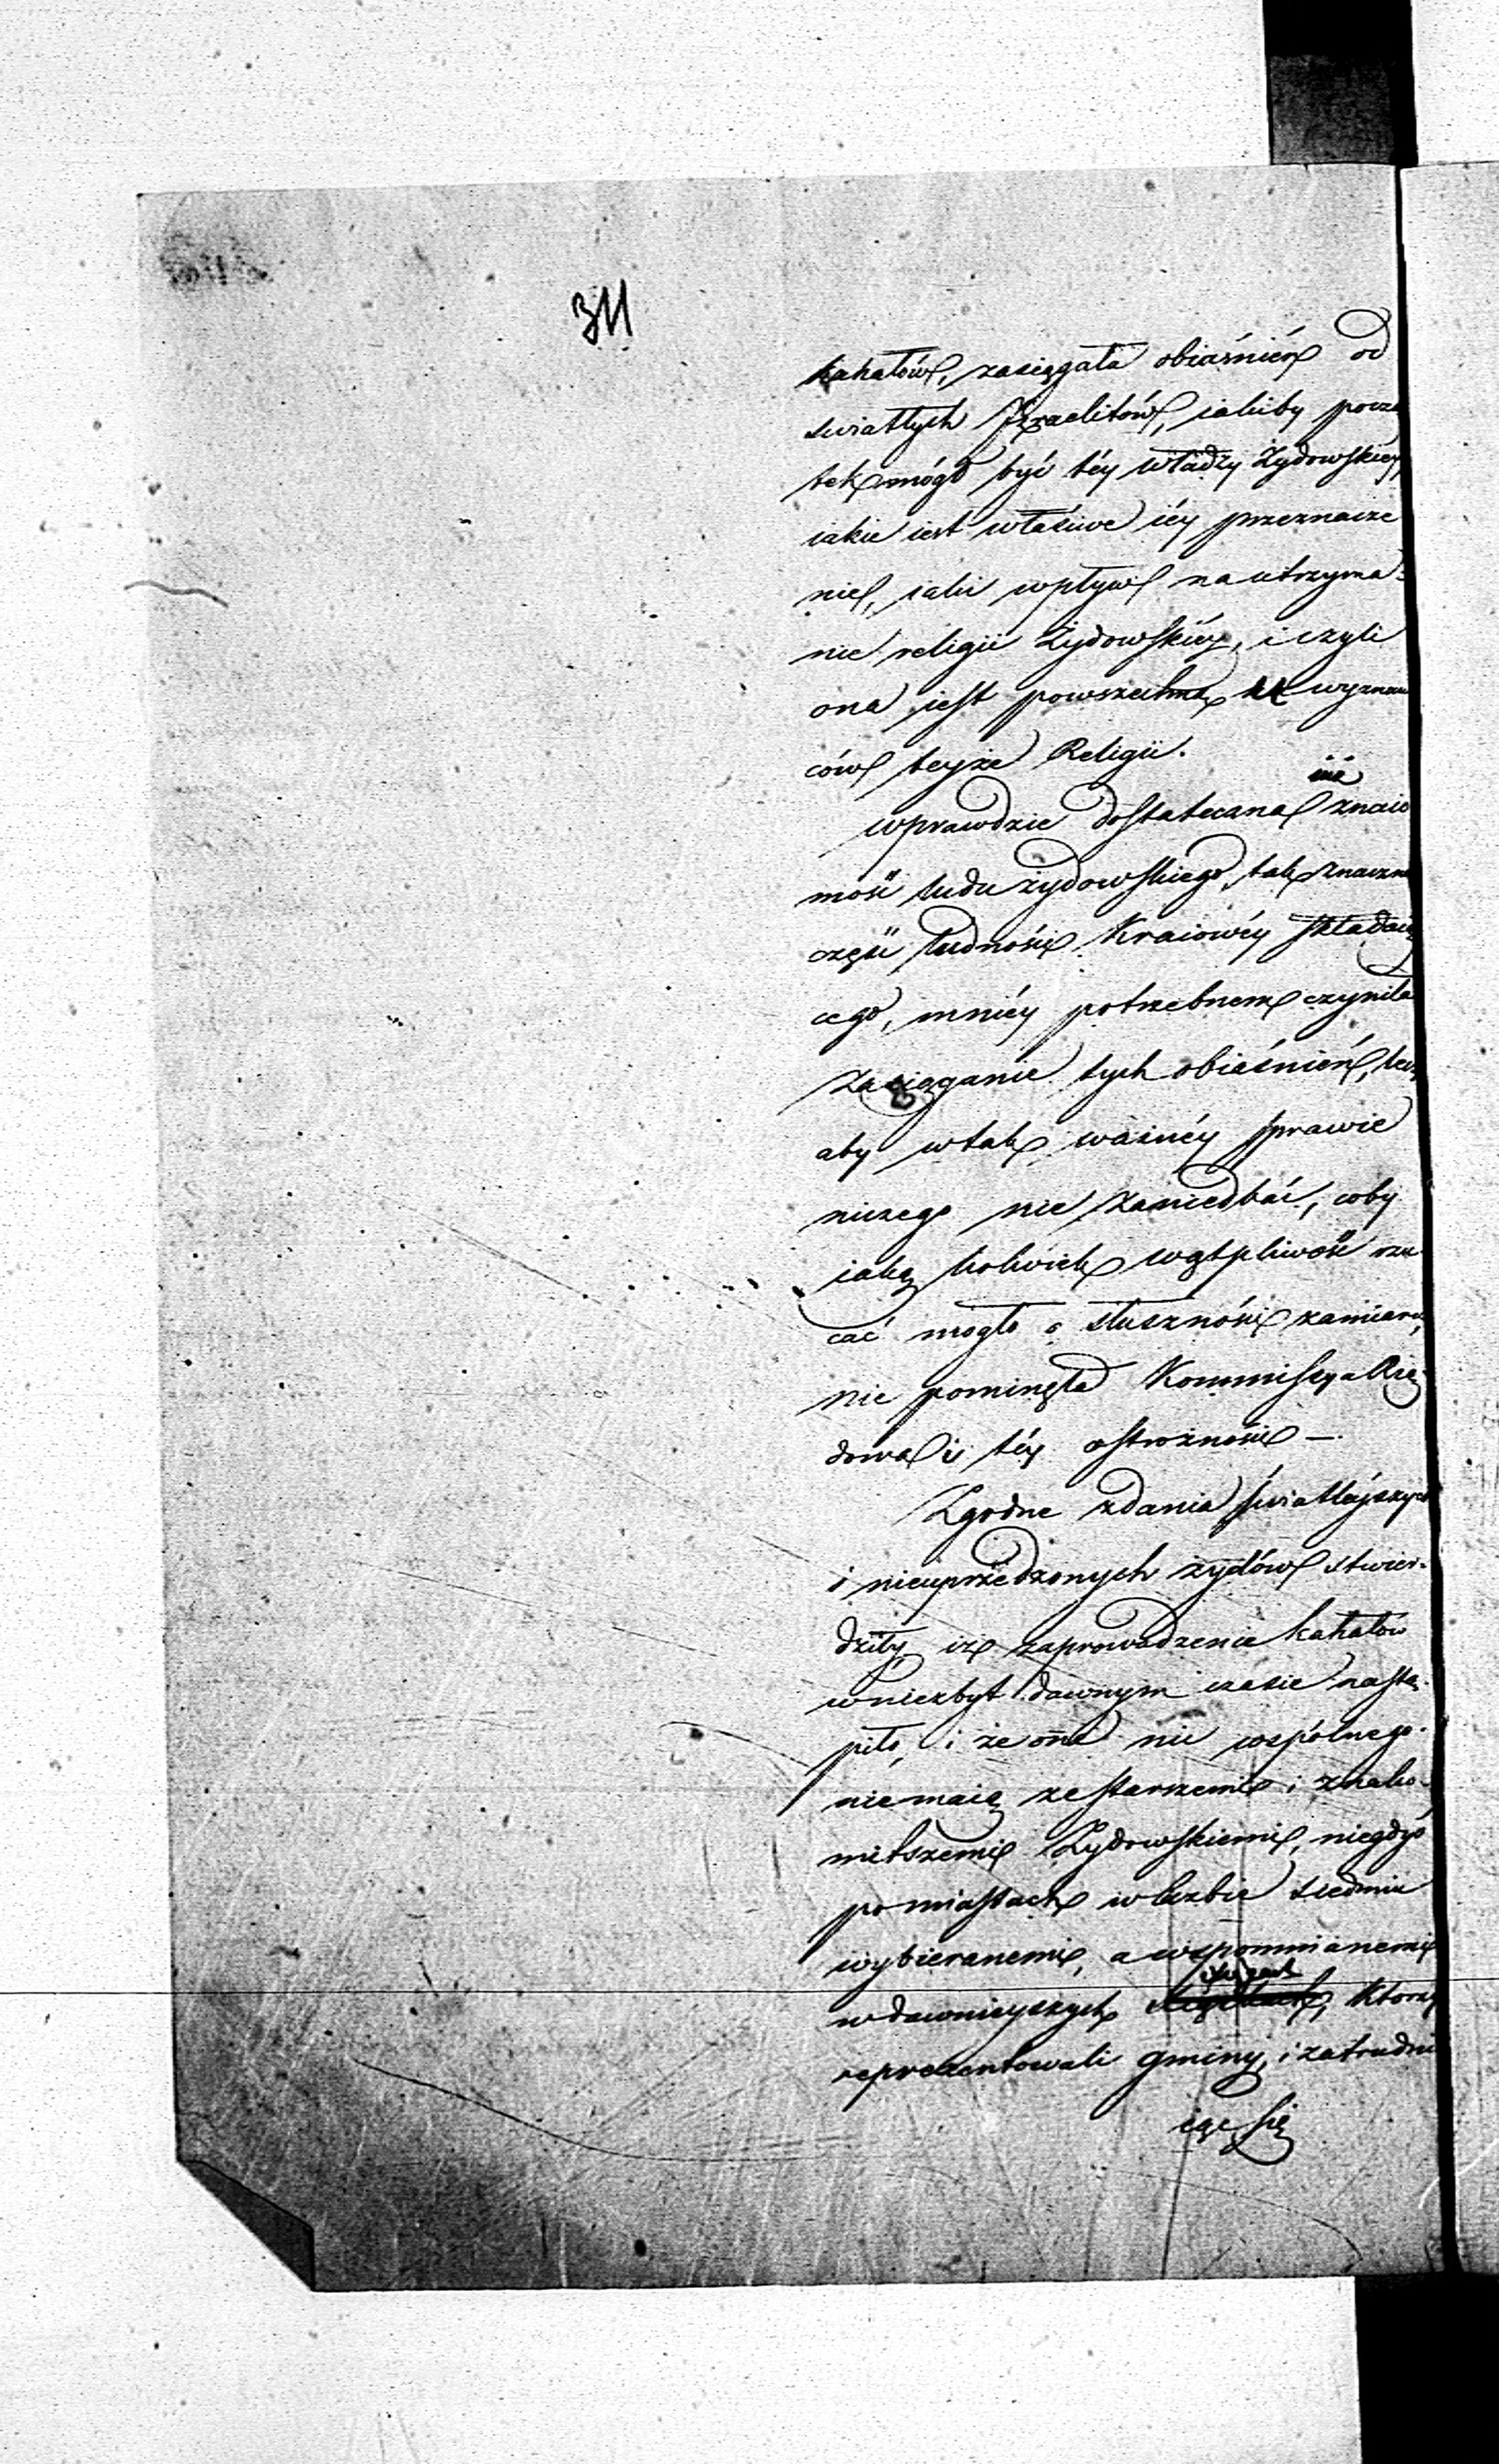 311
kahałów, zasięgała obiaśnień od
światłych Izraelitów, jakiby począ
tek mógł być téy władzy Żydowskiey,
iakie iest właściwe iéy przeznacze
nie, iaki wpływ na utrzyma-
nie religii Żydowskiéy, i czyli
ona jest powszechna u wyznaw
ców teyże Religii.
iuż
wprawdzie dostateczna znaio
mość ludu żydowskiego, tak znaczną
część ludności Kraiowéy składaią
cego, mniéy potrzebnem czyniła
zasięganie tych obiaśnień, lecz
aby w tak ważnéy sprawie
niczego nie zaniedbać, coby
iaką kolwiek wątpliwość rzu-
cać mogło o słuszności zamiaru,
nie pominęła Kommissya Rzą-
dowa i téy ostrożności —.
Zgodne zdania światłéjszych
i nieuprzedzonych żydów stwier-
dziły, iż zaprowadzenie kahałów
w niezbyt dawnym czasie nastą-
piło, i że one nic wspólnego
nie maią ze starszemi i znako-
mitszemi Żydowskiemi, niegdyś
po miastach w liczbie siedmiu
wybieranemi, a wspomnianemi
w dawnieyszych którzy
reprezentowali gminy, i zatrudni
iąc się